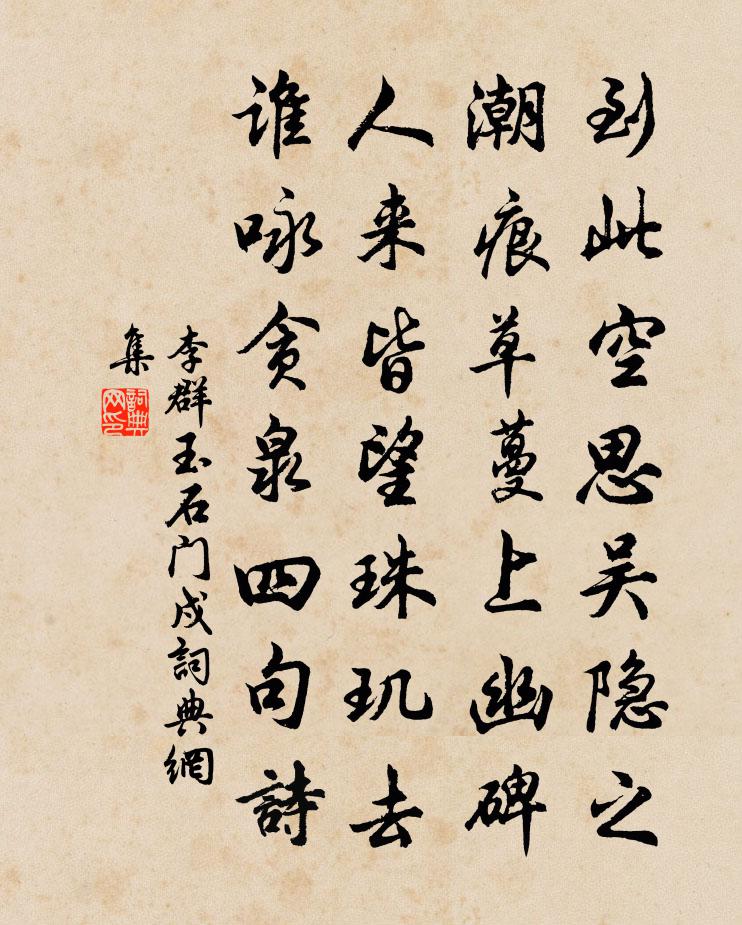 到此空思吴隐之
潮痕草蔓上幽碑
人来皆望珠玑去
谁咏贪泉四句詩
李群玉石门戍詞典網
集
詞典网印